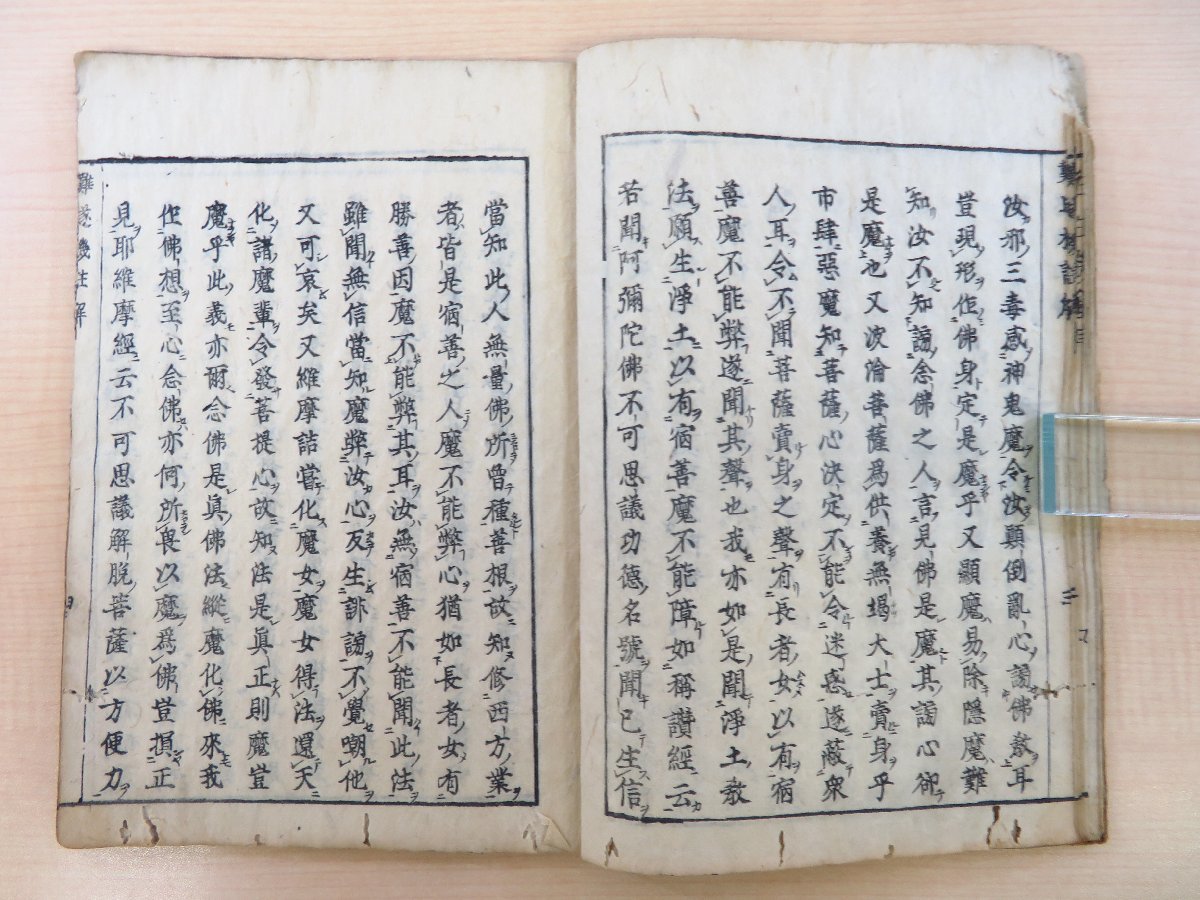 汝邪三毒感神鬼魔令汝顛倒亂心謗佛教耳
豈現形作佛身定是魔乎又顯魔易除隱魔難
知汝不知謗念佛之人言見佛是魔其謗心卻
是魔也又波淪菩薩為供養無竭大士賣身乎
市肆惡魔知菩薩心決定不能令迷惑遂蔽衆
人耳令不聞菩薩賣身之聲有長者女以有宿
善魔不能弊遂聞其聲也我亦如是聞淨土教
法願生淨土以有宿善魔不能障如稱讚經云
若聞阿彌陀佛不可思議功德名號聞已生信
當知此人無量佛所曾種善根故知修西方業
者皆是宿善之人魔不能弊心猶如長者女有
勝善因魔不能弊其耳汝無宿善不能聞此法
雖聞無信當知魔弊汝心反生誹謗不覺嘲他
又可哀矣又維摩詰嘗化魔女魔女得法還天
化諸魔輩令發菩提心故知法是真正則魔豈
魔乎此義亦爾念佛是真佛法縱魔化佛來我
作佛想至心念佛亦何所畏以魔為佛豈損正
見耶維摩經云不可思議解脫菩薩以方便力
難遂機註解